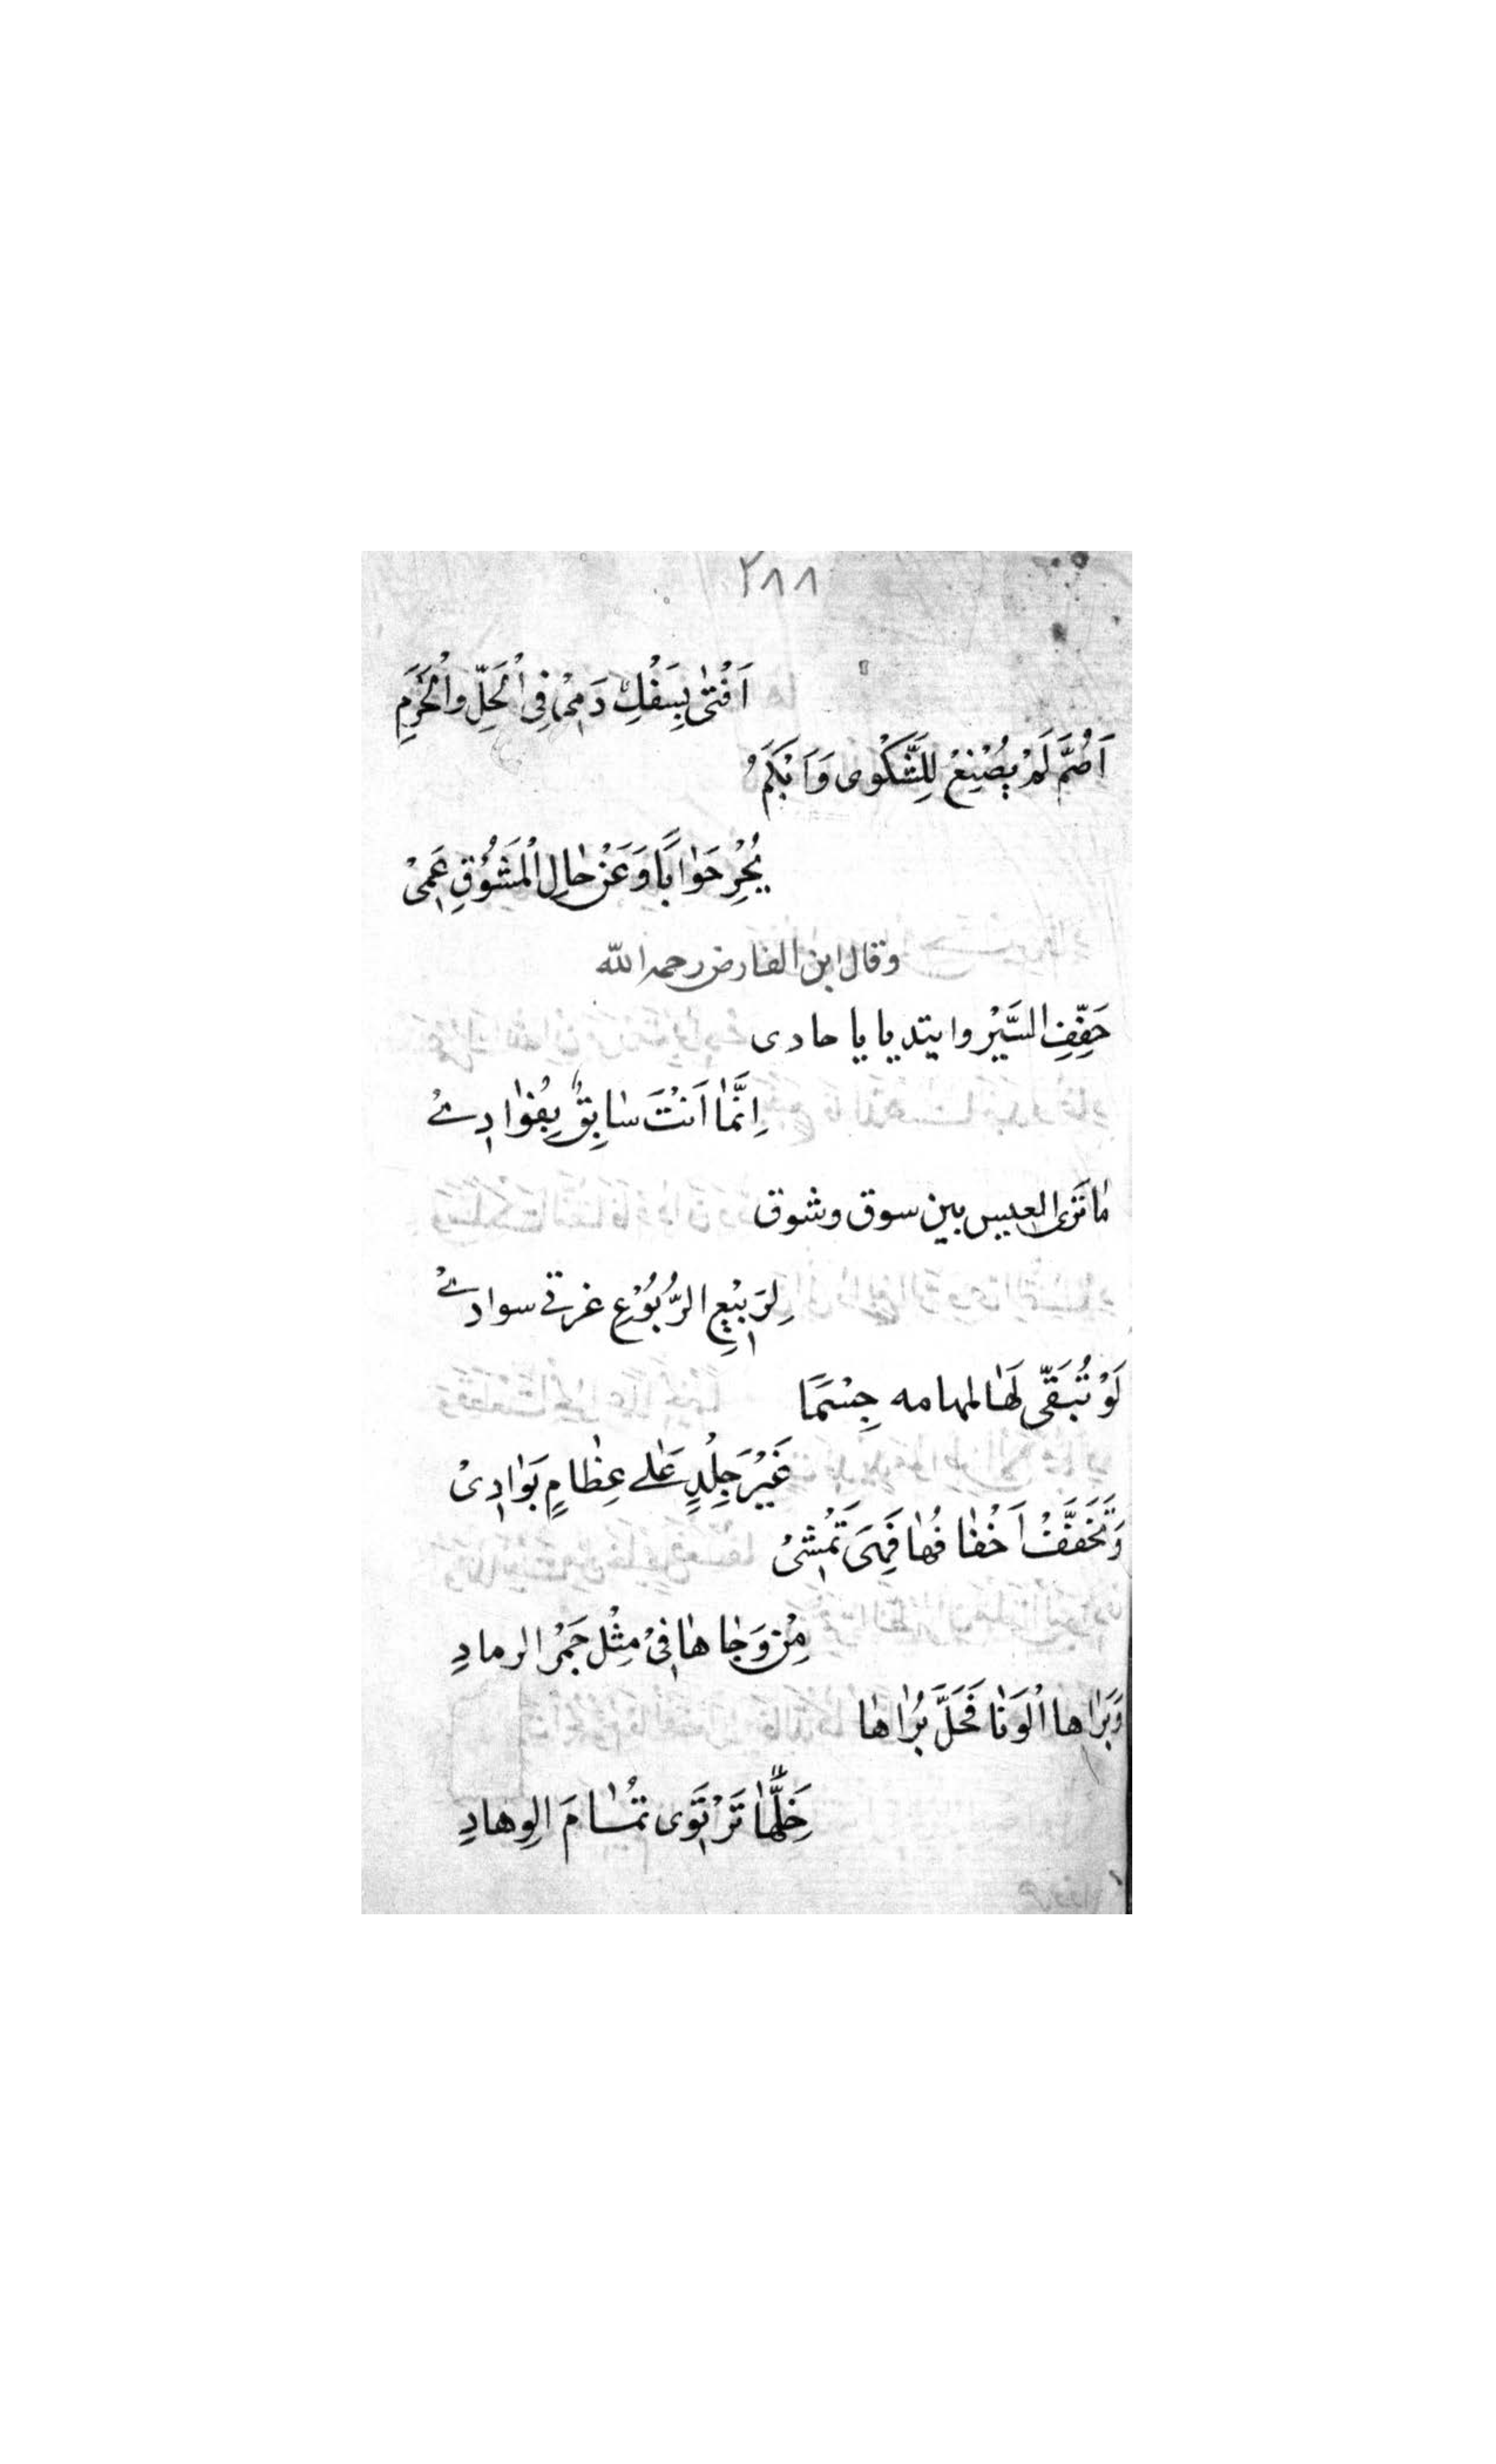 ٢٨٨
اَفْتٰى بِسَفْكِ دَمِىْ فِى الْحَلِّ وَالْحَرَمِ
اَصُمَّ لَمْ يُصْنِعْ لِلشَّكْوى وَاَبْكَمُ
يُحْرِ حَوٰابًا وَعَنْ حٰالِ الْمَشُوْقِ عَمِىْ
وقال ابن الفارض رحمه الله
حَفِّفِ السَّيْرَ وايتد يا يا حادى
اِنَّمٰا اَنْتَ سٰابِقٌ بِفُوٰادِىْ
مٰا تَرٰى العيس بين سوق وشوق
لِرَبِيْعِ الرُّبُوْعِ غرثى سوادىْ
لَوْ تُبَقّٰى لَهٰا المهامه جِسْمًا
غَيْرَ جِلْدٍ عَلٰى عِظٰامٍ بَوٰادِىْ
وَتَخَفَّفْ اَخْفٰافُهٰا فَهِىَ تَمْشِىْ
مِنْ وَجٰاهٰا فِىْ مِثْلِ جَمْرِ الرمادِ
وَبَرٰاها الْوَنٰا فَحَلَّ بُرٰاهٰا
خَلِّهٰا تَرْتَوى تُمٰامَ الِوهادِ